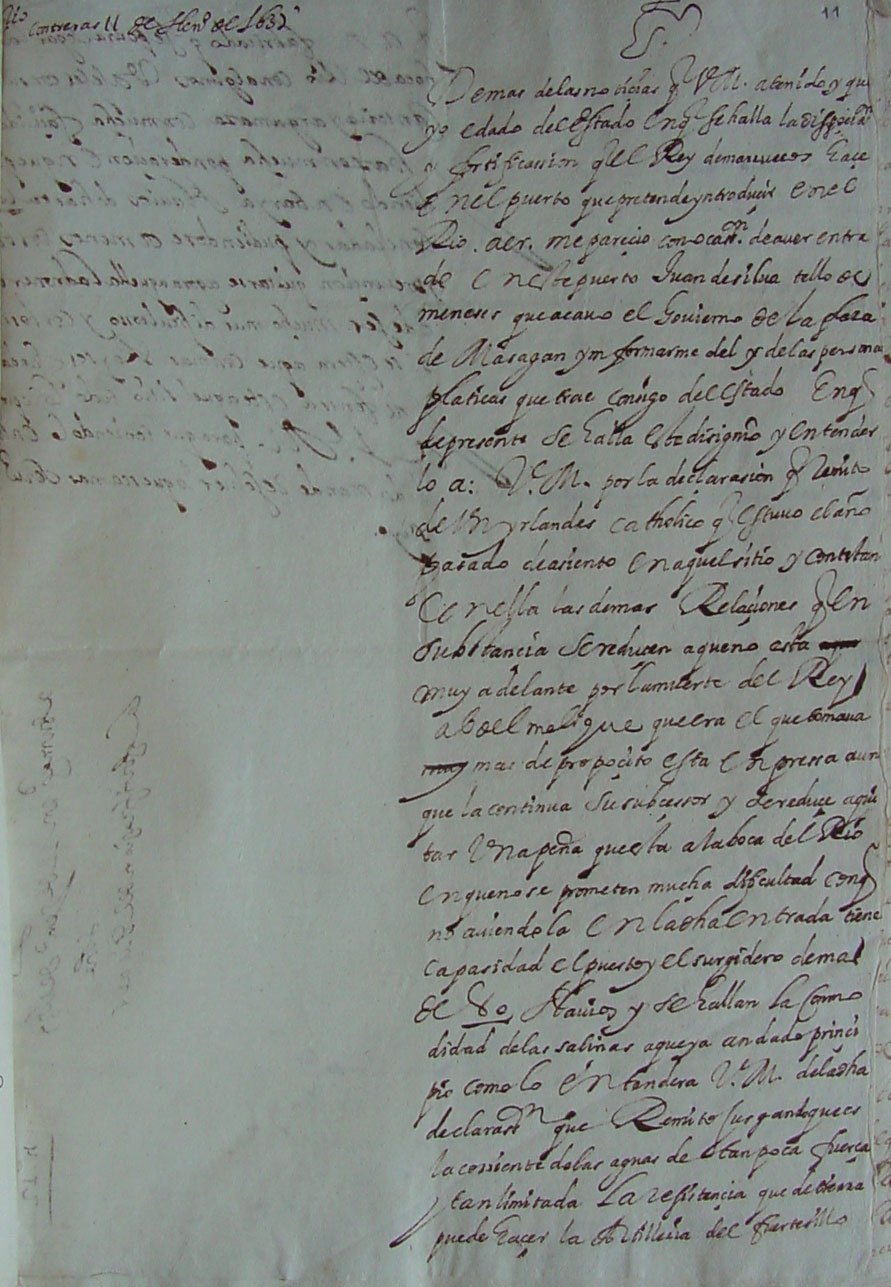 Contreras 11 de Hen.º de 1632
11
S.
Demas de las noticias q V.M. a tenido y que
yo e dado del estado en q se halla la dispisión
y fortificassion q el Rey de marruecos hace
en el puerto que pretende yntroducir en el
Rio. aer. me parecio con ocasion de aver entra
do en este puerto Juan de silua tello de
meneses que acauo el Govierno de la plaza
de Masagan ynformarme del y de las personas
platicas que trae consigo del estado En q
de presente se halla este disignio y entender
lo a: V. M. por la declarasion q Remito
de Un yrlandes catholico q estuuo el año
pasado de asiento en aquel sitio y contestan
con ella las demas Relaçiones q en
substancia se reducen a que no esta
muy adelante por la muerte del Rey
abdelmelique que era el que tomaua
mas de propocito esta enpressa aun
que la continua su subcessor y se reduce a qui
tar Una peña que esta a la boca del Rio
en que no se prometen mucha dificultad con q
no auiendola en la dha entrada tiene
capasidad el puerto y el surgidero de mas
de 80 Nauios y se hallan la Como
didad de las salinas a que ya an dado princi
pio como lo entendera V. M. de la dha
declarasn que Remito Juzgandoque es
la corriente de las aguas de tan poca fuerça
y tan limitada La resistencia que de tierra
puede haçer la Artilleria del fuertesillo